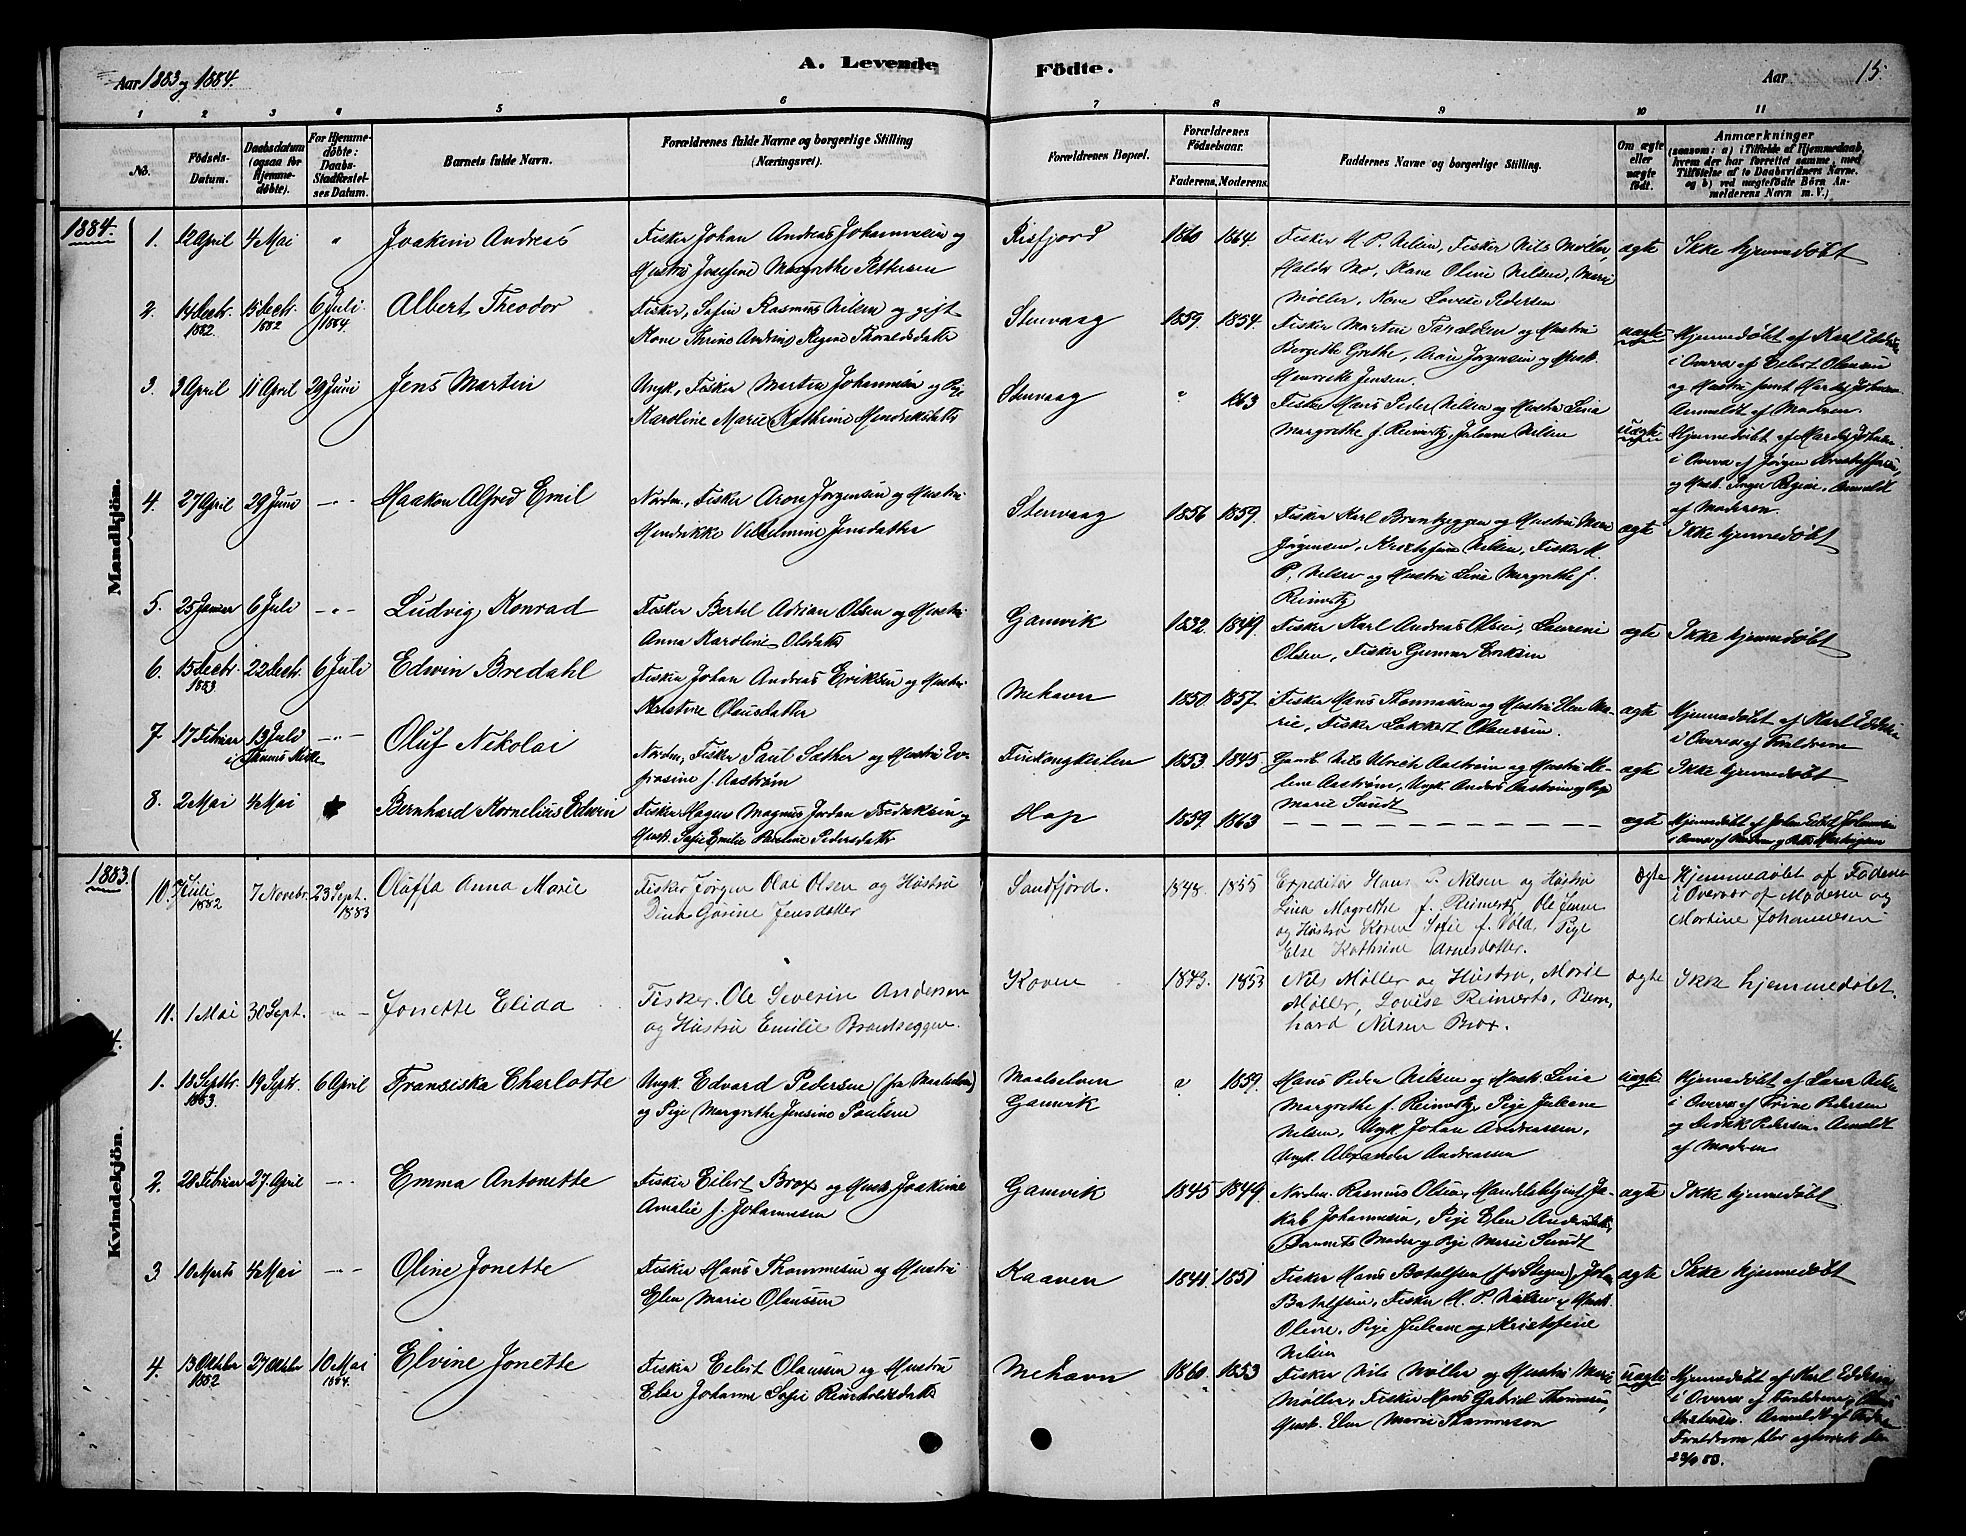 Aar 1883 og 1884.
A. Levende Födte.
Aar 15.
1 2 3 4 5 6 7 8 9 10 11
No.
Födsels-Datum.
Daabsdatum (ogsaa for Hjemmedöbte).
For Hjemmedöbte: Daabs-Stadfæstelses Datum.
Barnets fulde Navn.
Forældrenes fulde Navne og borgerlige Stilling (Næringsvei).
Forældrenes Bopæl.
Forældrenes Födselsaar.
Faderens. Moderens.
Faddernes Navne og borgerlige Stilling.
Om ægte eller uægte födt.
Anmærkninger
(saasom: a) i Tilfælde af Hjemmedaab, hvem der har forrettet samme, med Tilföielse af to Daabsvidners Navne. og b) ved uægtefödte Börn Anmelderens Navn m. V.)
1884.
Mandkjön.
1. 12 April 4 Mai " Joakim Andreas
Fisker Johan Andreas Johannesen og
Hustru Josefine Margrethe Pettersen
Risfjord 1860 1864
Fisker H. P. Nilsen, Fisker Nils Møller,
Halder Mo, Kone Oline Nilsen, Marie
Møller, Kone Lovise Pedersen
ægte Ikke hjemmedøbt
2. 14 Decbr. 1882 15 Decbr. 1882 6 Juli 1884 Albert Theodor
Fisker, Rasmus Nilsen og gift
Kone Andrine Regine Thoraldsdatter
Stenvaag 1859. 1854.
Fisker Martin Taraldsen og Hustru
Bergethe Grethe, Aron Jørgensen og Hust.
Henrikke Jensen.
uægte
Hjemmedøbt af Karl
i Overvær af Eilert Olaussen
og Hustru samt
Anmeldt af Moderen.
3. 3 April 11 April 29 Juni Jens Martin
Ungk. Fisker Martin Johannesen og Pige
Karoline Marie Kathrine Hendriksdatter
Stenvaag " 1863
Fisker Hans Peder Nilsen og Hustru Lina
Margrethe f. Reinertz, Juliane Nilsen
uægte
Hjemmedøbt af
i Overvær af Jørgen
og Hust. Inger Regine. Anmeldt
af Moderen.
4. 27 April 29 Juni Haakon Alfred Emil
Nordm., Fisker Aron Jørgensen og Hustru
Hendrikke Vilhelmine Jensdatter
Stenvaag 1856 1859.
Fisker Karl Brantzeggen og Hustru
Jørgensen, Nilsen, Fisker H.
P. Nilsen og Hustru Lina Margrethe f.
Reinertz
ægte Ikke hjemmedøbt
5. 25 Januar 6 Juli Ludvig Konrad
Fisker Bertel Adrian Olsen og Hustru
Anna Karoline Olsdatter
Gamvik 1832. 1849.
Fisker Karl Andreas Olsen, Laurine
Olsen, Fisker Gunnar Eriksen
ægte Ikke hjemmedøbt
6. 15 Decbr. 1883 22 Decbr. 6 Juli Edwin Bredahl
Fisker Johan Andreas Eriksen og Hustru
Olausdatter
Mehavn 1850. 1857.
Fisker Hans Thommassen og Hustru Elen Ma-
rie, Fisker Olaussen.
ægte
Hjemmedøbt af Karl
i Overvær af Forældrene
7. 17 Februar 13 Juli i Tanens Kirke Oluf Nikolai
Nordm., Fisker Paul Sæther og Hustru Eu-
frosine f. Aastrøm
Finkongkeilen 1853 1845.
Gamle Nils Ulrich Aastrøm og Hustru He-
lene Aastrøm, Ungk. Anders Aastrøm og Pige
Marie Sundt
ægte Ikke hjemmedøbt
8. 2 Mai 4 Mai Bernhard Kornelius Edwin
Fisker Hagen Magnus Jordan Fredriksen og
Hust. Sofie Emilie Pauline Pedersdatter
Hop 1859. 1863
ægte
Hjemmedøbt af Johan Johannesen
1883.
Kvindekjön.
10. Juli 1882 7 Novebr. 23 Sept. 1883 Oluffa Anna Marie
Fisker Jørgen Olai Olsen og Hustru
Dina Gurine Jensdatter
Sandfjord. 1848. 1855
Expeditør Hans P. Nilsen og Hustru
Lina Magrethe f. Reinertz, Ole Jensen
og Hustru Karen Sofie f. Vold, Pige
Else Kathrine Arnesdatter.
ægte
Hjemmedøbt af Faderen
i Overvær af Moderen og
Martine Johannesen
11. 1 Mai 30 Sept. Jonette Elida
Fisker. Ole Severin Andersen
og Hustru Emilie Brandseggen.
Koven 1843. 1853
Nils Møller og Hustru, Marie
Møller, Lovise Reinerts, Bern-
hard Nilsen Brox.
ægte Ikke hjemmedøbt.
1. 18 Septbr. 1883. 19 Septr. 6 April Fransiska Charlotte
Ungk. Edvard Pedersen (fra Maalselven)
og Pige Margrethe Jensine Paulsen
Maalselven
Gamvik " 1859.
Hans Peder Nilsen og Hust. Lina
Margrethe f. Reinertz, Pige Juliane
Nilsen, Ungk. Johan Andreassen,
Ungk. Alexander Andreassen
uægte
Hjemmedøbt af Nilsen
i Overvær af Trine Pedersen
og Fredrik Pedersen. Anmeldt
af Moderen
2. 28 Februar 27 April Emma Antonette
Fisker Eilert Brox og Hust. Joakime
Amalie f. Johannesen
Gamvik 1845 1849.
Nordm. Rasmus Olsen, Handelsbetjent Ja-
kob Johannesen, Pige Elen Andersdatter,
Barnets Moder og Pige Marie Sundt
ægte Ikke hjemmedøbt
3 10 Marts 4 Mai Oline Jonette
Fisker Hans Thommesen og Hustru
Elen Marie Olaussen
Kaaven 1841 1851
Fisker Hans Botolfsen (fra Steigen), Johan
Botolfsen, Fisker H. P. Nilsen og Hust.
Oline, Pige Juliane og Kristfine
Nilsen
ægte Ikke hjemmedøbt
4. 13 Oktober 1882 27 Oktober 10 Mai 1884. Elvine Jonette
Fisker Eilert Olaussen og Hustru
Elen Johanne Sofie Reinholdsdatter
Mehavn 1860. 1853
Fisker Nils Møller og Hustru Marie
Møller, Fisker Hans Gabriel Thommesen,
Hust. Elen Marie Thommesen
uægte
Hjemmedøbt af Karl
i Overvær af Forældrene,
Anmeldt af
Forældrene blev den